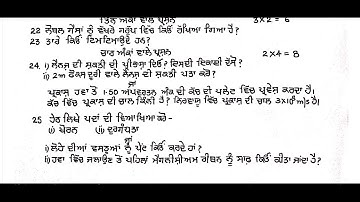 ਤਿੰਨ ਅੰਕਾਂ ਵਾਲੇ ਪ੍ਰਸ਼ਨ 3×2 = 6
22 ਨੋਬਲ ਗੈਸਾਂ ਨੂੰ ਵੱਖਰੇ ਗਰੁੱਪ ਵਿੱਚ ਕਿਉਂ ਰੱਖਿਆ ਗਿਆ ਹੈ?
23 ਤਾਰੇ ਕਿਉਂ ਟਿਮਟਿਮਾਉਂਦੇ ਹਨ?
ਚਾਰ ਅੰਕਾਂ ਵਾਲੇ ਪ੍ਰਸ਼ਨ 2×4 = 8
24. i) ਲੈਨਜ਼ ਦੀ ਸ਼ਕਤੀ ਦੀ ਪ੍ਰੀਭਾਸ਼ਾ ਦਿਓ? ਇਸਦੀ ਇਕਾਈ ਦੱਸੋ?
ii) 2m ਫੋਕਸ ਦੂਰੀ ਵਾਲੇ ਲੈਨਜ਼ ਦੀ ਸ਼ਕਤੀ ਪਤਾ ਕਰੋ?
ਜਾਂ
ਪ੍ਰਕਾਸ਼ ਹਵਾ ਤੋਂ 1.50 ਅਪਵਰਤਨ ਅੰਕ ਦੀ ਕੱਚ ਦੀ ਪਲੇਟ ਵਿੱਚ ਪ੍ਰਵੇਸ਼ ਕਰਦਾ ਹੈ।
ਕੱਚ ਵਿੱਚ ਪ੍ਰਕਾਸ਼ ਦੀ ਚਾਲ ਕਿੰਨੀ ਹੈ? ਨਿਰਵਾਯੂ ਵਿੱਚ ਪ੍ਰਕਾਸ਼ ਦੀ ਚਾਲ 3×10⁸ m/s ਹੈ।
25 ਹੇਠ ਲਿਖੇ ਪਦਾਂ ਦੀ ਵਿਆਖਿਆ ਕਰੋ -
(i) ਖੋਰਨ (ii) ਦੁਰਗੰਧਤਾ
ਜਾਂ
i) ਲੋਹੇ ਦੀਆਂ ਵਸਤੂਆਂ ਨੂੰ ਪੇਂਟ ਕਿਉਂ ਕਰਦੇ ਹਾਂ?
ii) ਹਵਾ ਵਿੱਚ ਜਲਾਉਣ ਤੋਂ ਪਹਿਲਾਂ ਮੈਗਨੀਸ਼ੀਅਮ ਰੀਬਨ ਨੂੰ ਸਾਫ਼ ਕਿਉਂ ਕੀਤਾ ਜਾਂਦਾ ਹੈ?